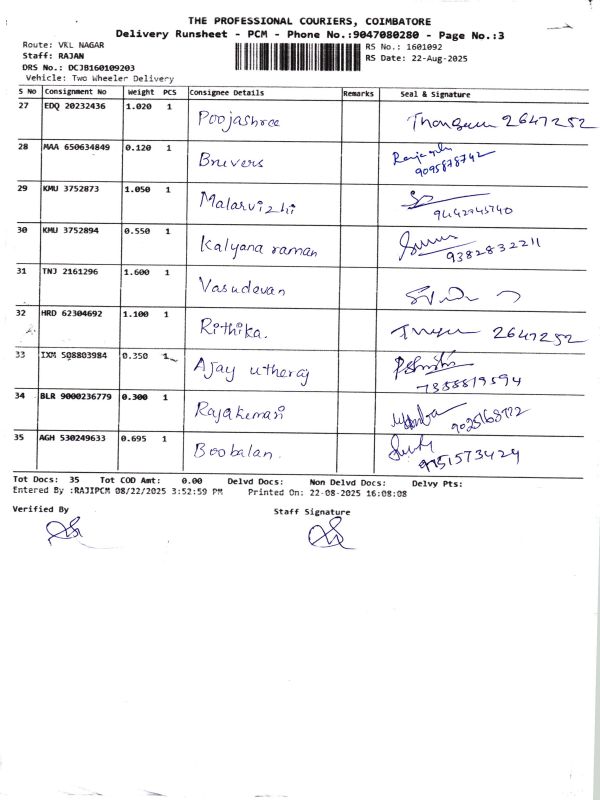 THE PROFESSIONAL COURIERS, COIMBATORE
Delivery Runsheet - PCM - Phone No.:9047080280 - Page No.:3
Route: VKL NAGAR
RS No.: 1601092
Staff: RAJAN
RS Date: 22-Aug-2025
DRS No.: DCJB160109203
Vehicle: Two Wheeler Delivery
S No Consignment No Weight PCS Consignee Details Remarks Seal & Signature
27 EDQ 20232436 1.020 1 Poojashree 2647252
28 MAA 650634849 0.120 1 Bruvers 9095878742
29 KMU 3752873 1.050 1 Malarvizhi
30 KMU 3752894 0.550 1 Kalyana raman 9382832211
31 TNJ 2161296 1.600 1 Vasudevan
32 HRD 62304692 1.100 1 Rithika. 2647252
33 IXM 508803984 0.350 1 Ajay utheraj 7358819594
34 BLR 9000236779 0.300 1 Rajakumari
35 AGH 530249633 0.695 1 Boobalan. 9751573429
Tot Docs: 35 Tot COD Amt: 0.00 Delvd Docs: Non Delvd Docs: Delvy Pts:
Entered By :RAJIPCM 08/22/2025 3:52:59 PM Printed On: 22-08-2025 16:08:08
Verified By Staff Signature